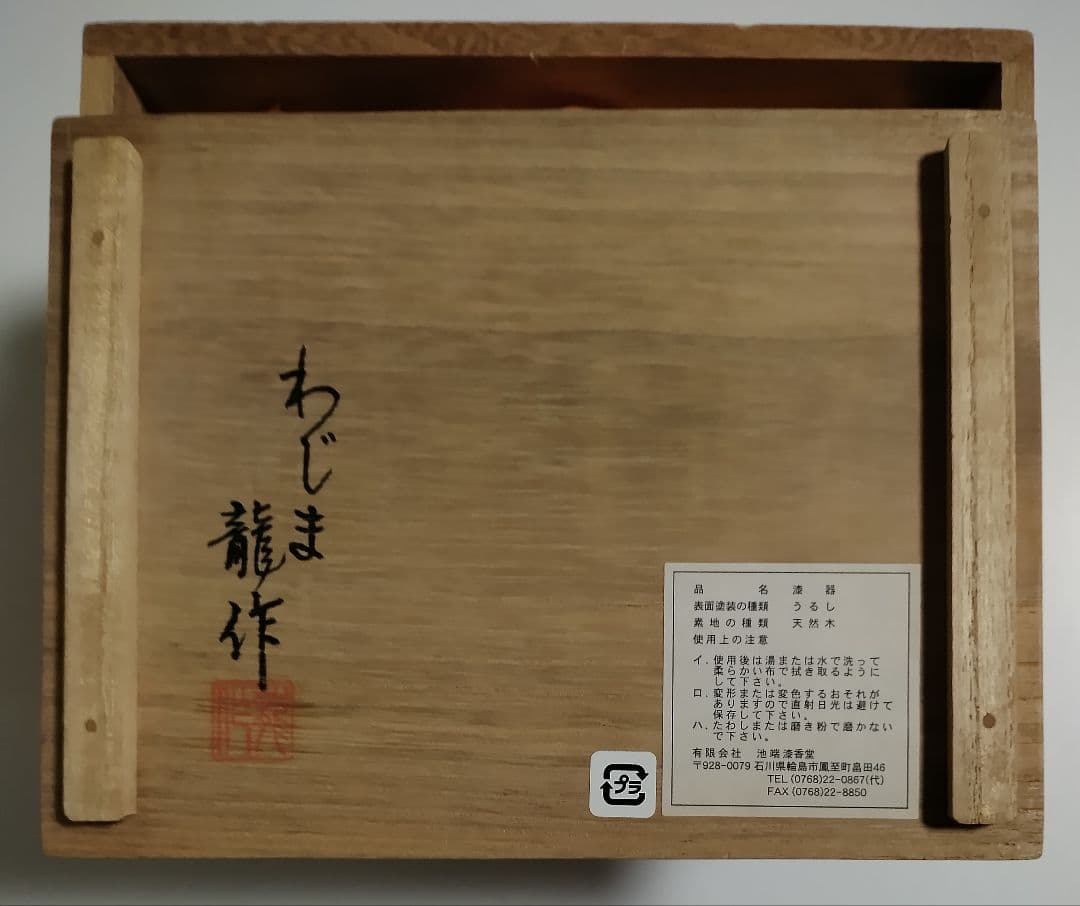 わじま
龍作
品名 漆器
表面塗装の種類 うるし
素地の種類 天然木
使用上の注意
イ．使用後は湯または水で洗って
柔らかい布で拭き取るように
して下さい。
ロ．変形または変色するおそれが
ありますので直射日光は避けて
保存して下さい。
ハ．たわしまたは磨き粉で磨かない
で下さい。
有限会社 池端漆香堂
〒928-0079 石川県輪島市鳳至町畠田46
TEL (0768)22-0867(代)
FAX (0768)22-8850
プラ